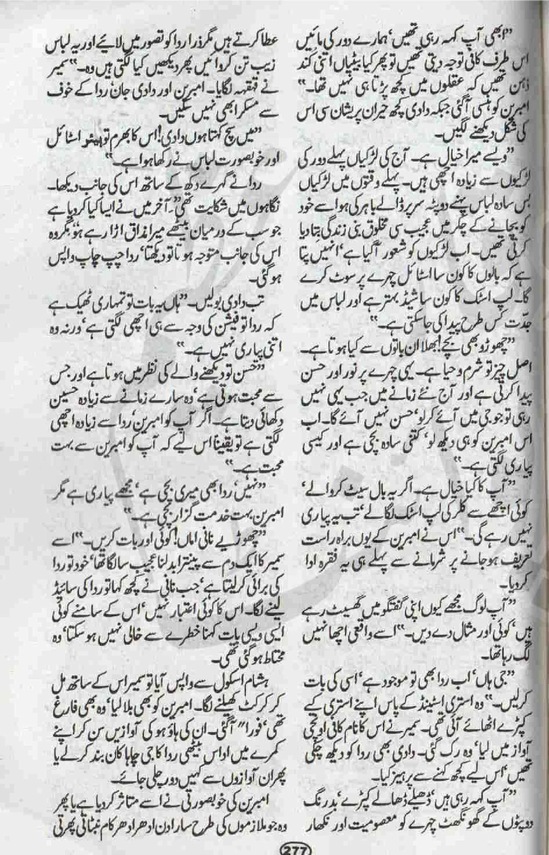 ”ابھی آپ کہہ رہی تھیں‘ ہمارے دور کی مائیں
اس طرف کافی توجہ دیتی تھیں تو پھر کیا بیٹیاں اتنی کند
ذہن تھیں کہ عقلوں میں کچھ پڑتا ہی نہیں تھا۔“
امبرین کو ہنسی آگئی جبکہ دادی کچھ حیران پریشان سی اس
کی شکل دیکھنے لگیں۔
”ویسے میرا خیال ہے۔ آج کی لڑکیاں پہلے دور کی
لڑکیوں سے زیادہ اچھی ہیں۔ پہلے وقتوں میں لڑکیاں
بس سادہ لباس پہنے دوپٹہ سر پر ڈالے باہر کی ہوا سے خود
کو بچانے کے چکر میں عجیب سی مخلوق بنی زندگی بتا دیا
کرتی تھیں۔ اب لڑکیوں کو شعور آگیا ہے‘ انہیں پتا
ہے کہ بالوں کا کون سا اسٹائل چہرے پر سوٹ کرے
گا۔ لپ اسٹک کا کون سا شیڈ بہتر ہے اور لباس میں
جدت کس طرح پیدا کی جاسکتی ہے۔“
”چھوڑو بھی بچے! بھلا ان باتوں سے کیا ہوتا ہے۔
اصل چیز تو شرم و حیا ہے۔ یہی چہرے پر نور اور حسن
پیدا کرتی ہے اور آج نئے زمانے میں جب یہی نہیں
رہی تو جو جی میں آئے کرلو‘ حسن نہیں آئے گا۔ اب
اس امبرین کو ہی دیکھ لو‘ کتنی سادہ بچی ہے اور کیسی
پیاری لگتی ہے۔“
”آپ کا کیا خیال ہے۔ اگر یہ بال سیٹ کروالے‘
کوئی اچھے سے کلر کی لپ اسٹک لگالے‘ تب یہ پیاری
نہیں رہے گی۔“ اس نے امبرین کے یوں براہ راست
تعریف ہوجانے پر شرمانے سے پہلے ہی یہ فقرہ ادا
کردیا۔
”آپ لوگ مجھے کیوں اپنی گفتگو میں گھسیٹ رہے
ہیں‘ کوئی اور مثال دے دیں۔“ اسے واقعی اچھا نہیں
لگ رہا تھا۔
”جی ہاں‘ اب ردا بھی تو موجود ہے‘ اسی کی بات
کرلیں۔“ وہ استری اسٹینڈ کے پاس اپنے استری کے
کپڑے اٹھانے آئی تھی۔ سمیر نے اس کا نام کافی اونچی
آواز میں لیا‘ وہ رک گئی۔ دادی بھی ردا کو دیکھ چکی
تھیں‘ اس لیے کچھ کہنے سے پرہیز کیا۔
”آپ کہہ رہی ہیں‘ ڈھیلے ڈھالے کپڑے‘ بدرنگ
دوپٹوں کے گھونگھٹ چہرے کو معصومیت اور نکھار
عطا کرتے ہیں مگر ذرا ردا کو تصور میں لائیے اور یہ لباس
زیب تن کروا کیں پھر دیکھیں کیا لگتی ہیں وہ۔“ سمیر
نے قہقہہ لگایا۔ امبرین اور دادی جان ردا کے خوف
سے مسکرا بھی نہیں سکیں۔
”میں سچ کہتا ہوں دادی! اس کا بھرم تو اسٹائل
اور خوبصورت لباس نے رکھا ہوا ہے۔“
ردا نے گہرے دکھ کے ساتھ اس کی جانب دیکھا۔
نگاہوں میں شکایت تھی ”آخر میں نے ایسا کیا کردیا ہے
جو سب کے درمیان بیٹھے میرا مذاق اڑا رہے ہو“ مگر وہ
اس کی جانب متوجہ ہوتا تو دیکھتا‘ ردا چپ چاپ واپس
ہوگئی۔
تب دادی بولیں۔ ”ہاں یہ بات تو تمہاری ٹھیک ہے
کہ ردا تو فیشن کی وجہ سے ہی اچھی لگتی ہے‘ ورنہ وہ
اتنی پیاری نہیں ہے۔“
”حسن تو دیکھنے والے کی نظر میں ہوتا ہے اور جس
سے محبت ہوتی ہے‘ وہ سارے زمانے سے زیادہ حسین
دکھائی دیتا ہے۔ اگر آپ کو امبرین‘ ردا سے زیادہ اچھی
لگتی ہے تو یقیناً اس لیے کہ آپ کو امبرین سے بہت
محبت ہے۔“
”نہیں‘ ردا بھی میری بچی ہے‘ مجھے پیاری ہے مگر
امبرین بہت خدمت گزار بچی ہے۔“
”چھوڑیے نانی اماں! کوئی اور بات کریں۔“ اسے
سمیر کا ایک دم سے پینترا بدلنا عجیب سا لگا تھا‘ خود تو ردا
کی برائی کرلیتا ہے‘ جب نانی نے کچھ کہا تو ردا کی سائیڈ
لینے لگا۔ اس کا کوئی اعتبار نہیں‘ اس کے سامنے کوئی
ایسی ویسی بات کہنا خطرے سے خالی نہیں ہو سکتا‘ وہ
محتاط ہو گئی تھی۔
ہشام اسکول سے واپس آیا تو سمیر اس کے ساتھ مل
کر کرکٹ کھیلنے لگا۔ امبرین کو بھی بلا لیا‘ وہ بھی فارغ
تھی‘ فوراً آگئی۔ ان کی ہاؤ ہو کی آوازیں سن کر اپنے
کمرے میں اداس بیٹھی ردا کا جی چاہا کان بند کرلے یا
پھر ان آوازوں سے کہیں دور چلی جائے۔
امبرین کی خوبصورتی نے اسے متاثر کردیا ہے یا پھر
وہ جو ملازموں کی طرح سارا دن ادھر ادھر کام نبٹاتی پھرتی
277